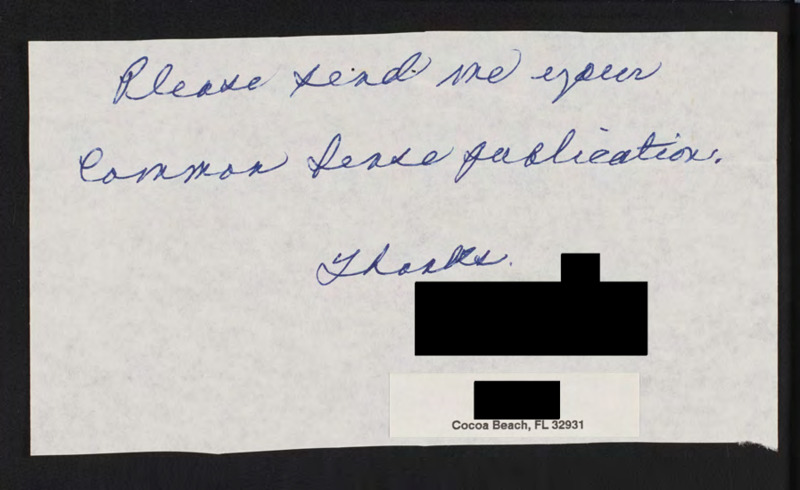 Please send me your
Common Sense publication.
Thanks.
Cocoa Beach, FL 32931